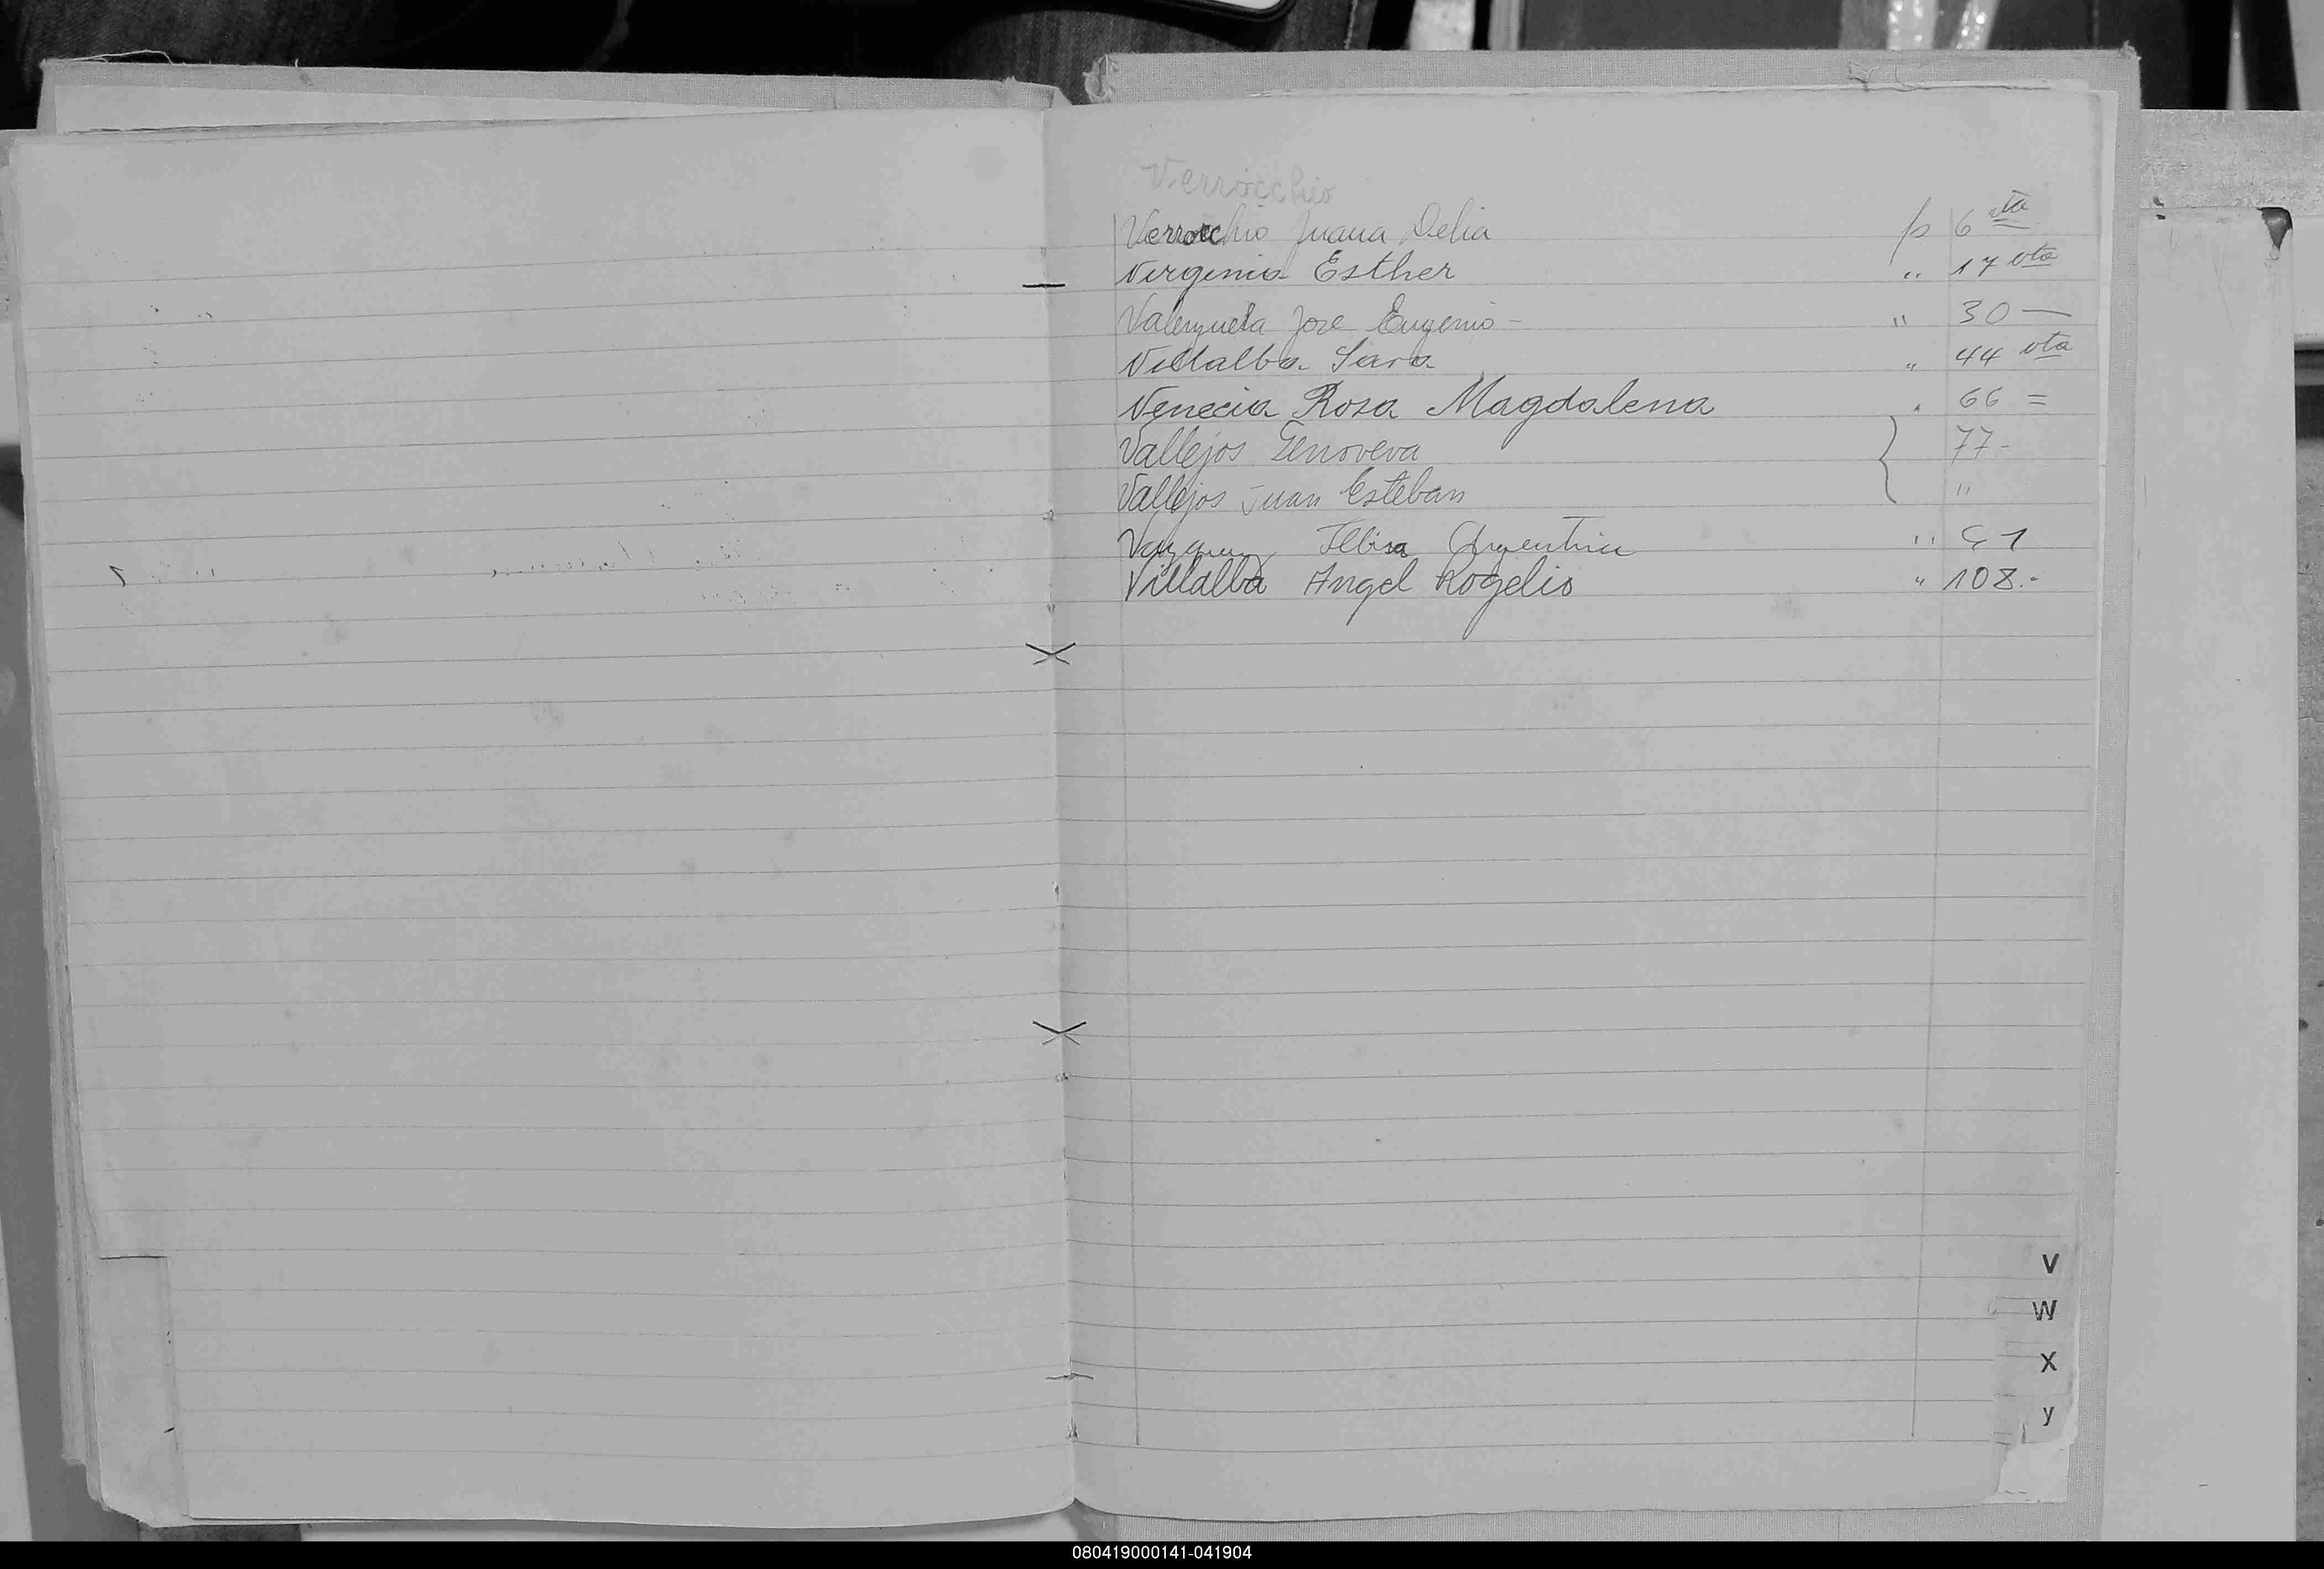 Verrocchio
Verrocchio Juana Delia fo 6 vta
Virginia Esther " 17 vta
Valenzuela Jose Eugenio - " 30 —
Villalba Sara " 44 vta
Venecia Rosa Magdalena " 66 =
Vallejos Genoveva 77 -
Vallejos Juan Esteban "
Argentina " 91
Villalba Angel Rogelio " 108.-
V
W
X
y
080419000141-041904